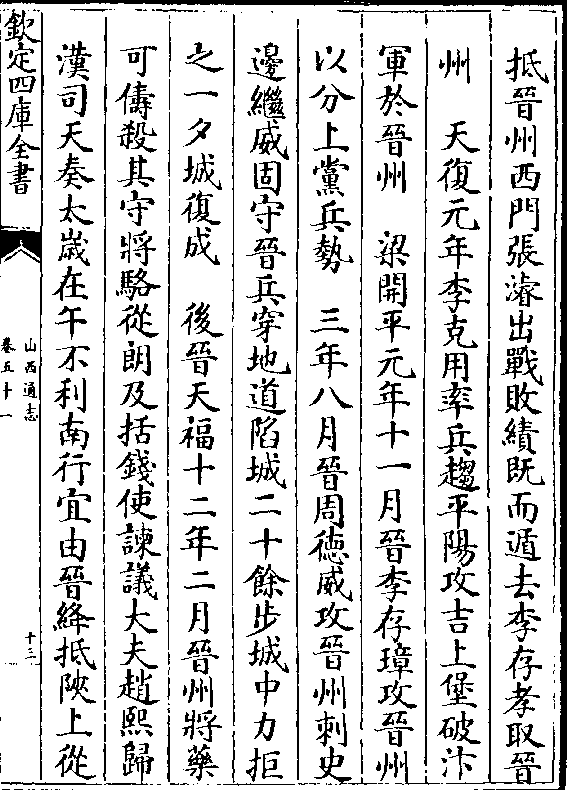 抵晉州西門張濬出戰敗績既而遁去李存孝取晉
州　天復元年李克用率兵趨平陽攻吉上堡破汴
軍於晉州　梁開平元年十一月晉李存璋攻晉州
以分上黨兵勢　三年八月晉周德威攻晉州刺史
邊繼威固守晉兵穿地道陷城二十餘步城中力拒
之一夕城復成　後晉天福十二年二月晉州將藥
可儔殺其守將駱從朗及括錢使諫議大夫趙熙歸
漢司天奏太歲在午不利南行宜由晉絳抵陝上從
欽定四庫全書
山西通志
卷五十一
十三